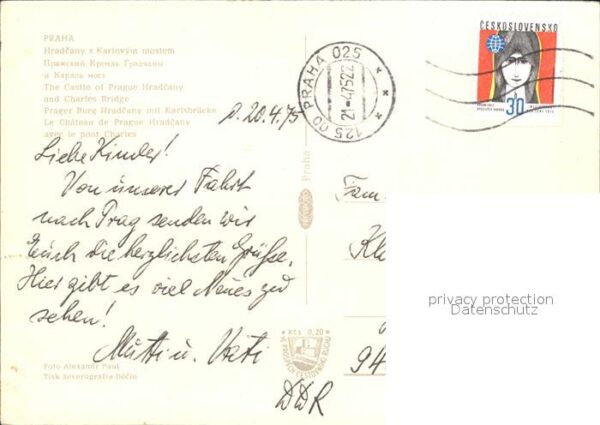 PRAHA
Hradčany s Karlovým mostem
Пражский Кремль Градчаны
и Карлов мост
The Castle of Prague Hradčany
and Charles Bridge
Prager Burg Hradčany mit Karlsbrücke
Le Château de Prague Hradčany
avec le pont Charles
ČESKOSLOVENSKO
30
PRAHA 025
21.-4.75 22
125 00
p. 20.4.75
Liebe Kinder!
Von unserer Fahrt
nach Prag senden wir
Euch die herzlichsten Grüße.
Hier gibt es viel Neues zu
sehen!
Mutti u. Vati
Praha
Fam.
Kl
94
DDR
KČS 0,20
Foto Alexandr Paul
Tisk Severografia Děčín
privacy protection
Datenschutz